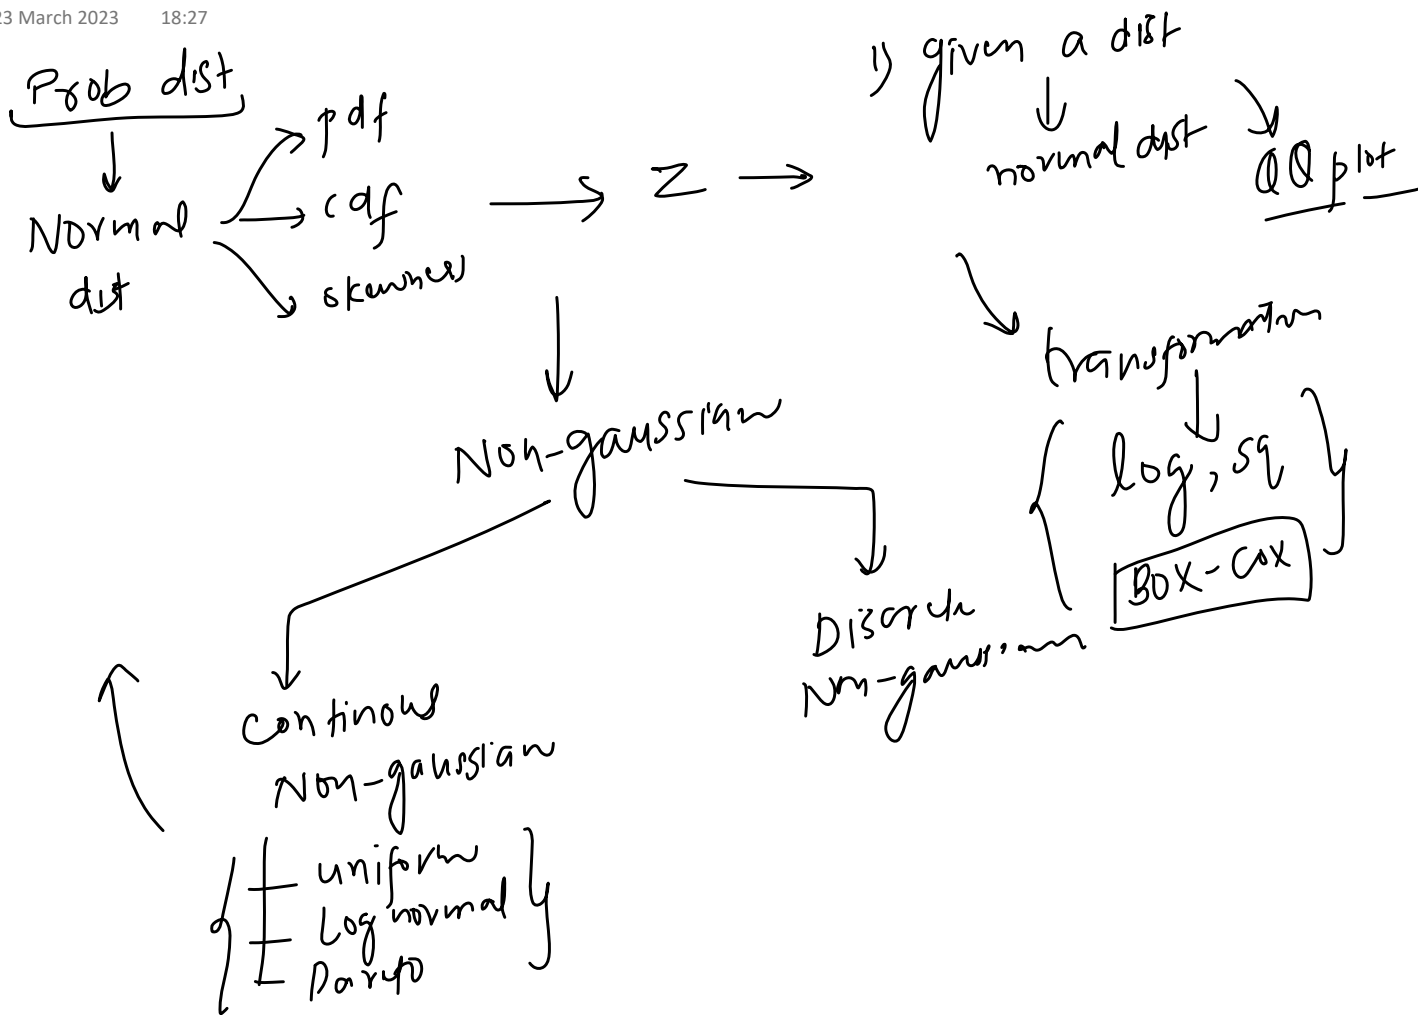 23 March 2023 18:27
Prob dist
Normal
dist
pdf
cdf
skewness
Z
1) given a dist
normal dist
QQ plot
transformation
log, sq
Box-Cox
Non-gaussian
Discrete
Non-gaussian
continous
Non-gaussian
uniform
Log normal
Pareto